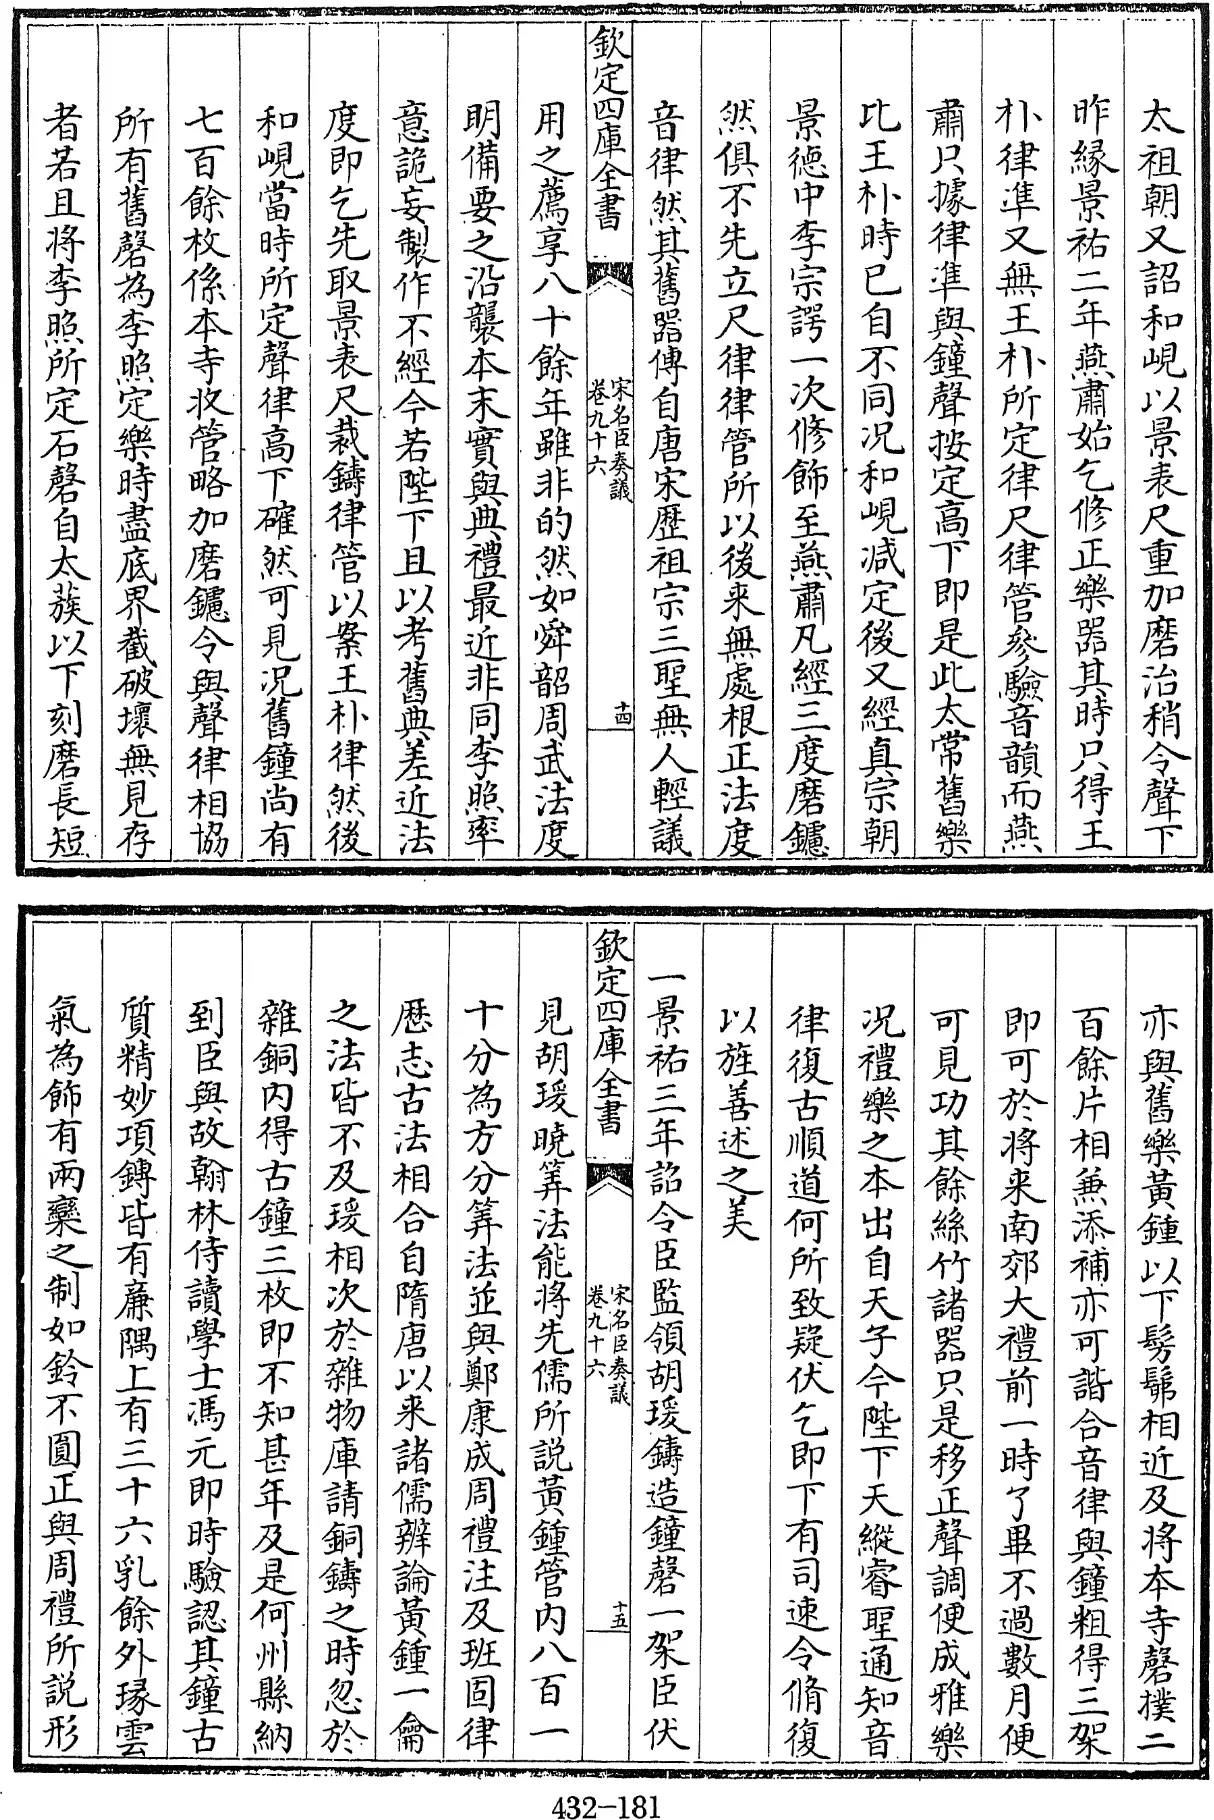 太祖朝又詔和峴以景表尺重加磨治稍令聲下
昨縁景祐二年燕肅始乞修正樂器其時只得王
朴律凖又無王朴所定律尺律管參驗音韻而燕
肅只據律凖與鐘聲按定高下即是此太常舊樂
比王朴時已自不同况和峴减定後又經真宗朝
景徳中李宗諤一次修飾至燕肅凡經三度磨鑢
然俱不先立尺律律管所以後来無處根正法度
音律然其舊器傳自唐宋歴祖宗三聖無人輕議
欽定四庫全書
宋名臣奏議
卷九十六
十四
用之薦享八十餘年雖非的然如舜韶周武法度
明備要之沿襲本末實與典禮最近非同李照率
意詭妄製作不經今若陛下且以考舊典差近法
度即乞先取景表尺裁鑄律管以案王朴律然後
和峴當時所定聲律高下確然可見况舊鐘尚有
七百餘枚係本寺收管略加磨鑢令與聲律相協
所有舊磬為李照定樂時盡底界截破壞無見存
者若且将李照所定石磬自太蔟以下刻磨長短
亦與舊樂黄鍾以下髣髴相近及將本寺磬撲二
百餘片相兼添補亦可諧合音律與鐘粗得三架
即可於将来南郊大禮前一時了畢不過數月便
可見功其餘絲竹諸器只是移正聲調便成雅樂
况禮樂之本出自天子今陛下天縱睿聖通知音
律復古順道何所致疑伏乞即下有司速令脩復
以旌善述之美
一景祐三年詔令臣監領胡瑗鑄造鐘磬一架臣伏
欽定四庫全書
宋名臣奏議
卷九十六
十五
見胡瑗曉筭法能將先儒所説黄鍾管内八百一
十分為方分筭法並與鄭康成周禮注及班固律
歴志古法相合自隋唐以来諸儒辨論黄鍾一龠
之法皆不及瑗相次於雜物庫請銅鑄之時忽於
雜銅内得古鐘三枚即不知甚年及是何州縣納
到臣與故翰林侍讀學士馮元即時驗認其鐘古
質精妙項鏄皆有廉隅上有三十六乳餘外瑑雲
氣為飾有兩欒之制如鈴不圓正與周禮所説形
432-181